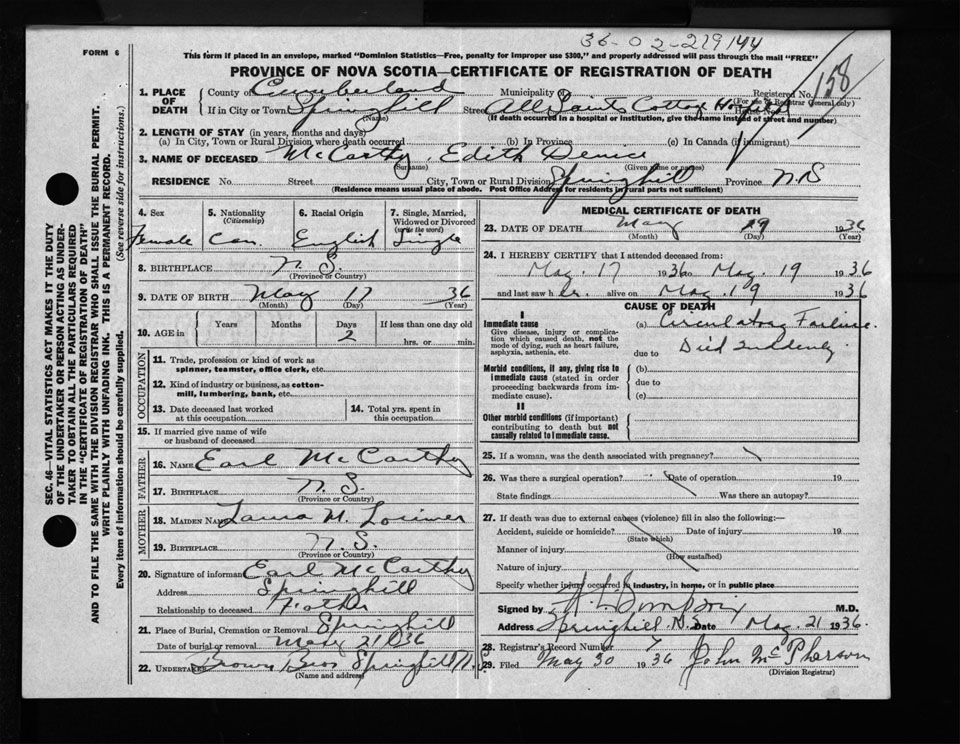 36-02-219144
FORM 6
This form if placed in an envelope, marked "Dominion Statistics—Free, penalty for improper use $300," and properly addressed will pass through the mail "FREE"
PROVINCE OF NOVA SCOTIA—CERTIFICATE OF REGISTRATION OF DEATH
158
SEC. 46—VITAL STATISTICS ACT MAKES IT THE DUTY
OF THE UNDERTAKER OR PERSON ACTING AS UNDER-
TAKER TO OBTAIN ALL THE PARTICULARS REQUIRED
IN THE "CERTIFICATE OF REGISTRATION OF DEATH"
AND TO FILE THE SAME WITH THE DIVISION REGISTRAR WHO SHALL ISSUE THE BURIAL PERMIT.
WRITE PLAINLY WITH UNFADING INK. THIS IS A PERMANENT RECORD.
Every item of information should be carefully supplied. (See reverse side for instructions.)
1. PLACE OF DEATH County of Cumberland Municipality Registered No.
(For use of Registrar General only)
If in City or Town Springhill Street All Saints Cottage Hospital
(Name) (If death occurred in a hospital or institution, give the name instead of street and number)
2. LENGTH OF STAY (in years, months and days)
(a) In City, Town or Rural Division where death occurred (b) In Province (c) In Canada (if immigrant)
3. NAME OF DECEASED McCarthy, Edith Denice
(Surname) (Given name or names)
RESIDENCE No. Street City, Town or Rural Division Springhill Province N.S
(Residence means usual place of abode. Post Office Address for residents in rural parts not sufficient)
4. Sex 5. Nationality (Citizenship) 6. Racial Origin 7. Single, Married, Widowed or Divorced (write the word)
Female Can. English Single
8. BIRTHPLACE N.S.
(Province or Country)
9. DATE OF BIRTH May 17 36
(Month) (Day) (Year)
10. AGE in Years Months Days If less than one day old
2 hrs. or min.
OCCUPATION
11. Trade, profession or kind of work as
spinner, teamster, office clerk, etc.
12. Kind of industry or business, as cotton-
mill, lumbering, bank, etc.
13. Date deceased last worked
at this occupation
14. Total yrs. spent in
this occupation
15. If married give name of wife
or husband of deceased
FATHER
16. NAME Earl McCarthy
17. BIRTHPLACE N.S.
(Province or Country)
MOTHER
18. MAIDEN NAME Laura M. Lorimer
19. BIRTHPLACE N.S.
(Province or Country)
20. Signature of informant Earl McCarthy
Address Springhill
Relationship to deceased Father
21. Place of Burial, Cremation or Removal Springhill
Date of burial or removal May 21 1936
22. UNDERTAKER Brown Bros Springhill N.S.
(Name and address)
MEDICAL CERTIFICATE OF DEATH
23. DATE OF DEATH May 19 1936
(Month) (Day) (Year)
24. I HEREBY CERTIFY that I attended deceased from:
May 17 1936 to May 19 1936
and last saw her alive on May 19 1936
CAUSE OF DEATH
I
Immediate cause (a) Circulatory Failure.
Give disease, injury or complica-
tion which caused death, not the
mode of dying, such as heart failure,
asphyxia, asthenia, etc.
due to Died suddenly
Morbid conditions, if any, giving rise to
immediate cause (stated in order
proceeding backwards from im-
mediate cause).
(b)
due to
(c)
II
Other morbid conditions (if important)
contributing to death but not
causally related to immediate cause.
25. If a woman, was the death associated with pregnancy?
26. Was there a surgical operation? Date of operation 19
State findings Was there an autopsy?
27. If death was due to external causes (violence) fill in also the following:—
Accident, suicide or homicide? Date of injury 19
(State which)
Manner of injury
(How sustained)
Nature of injury
Specify whether injury occurred in industry, in home, or in public place
Signed by M.D.
Address Springhill N.S. Date May 21 1936.
28. Registrar's Record Number
29. Filed May 30 1936 John McPherson
(Division Registrar)